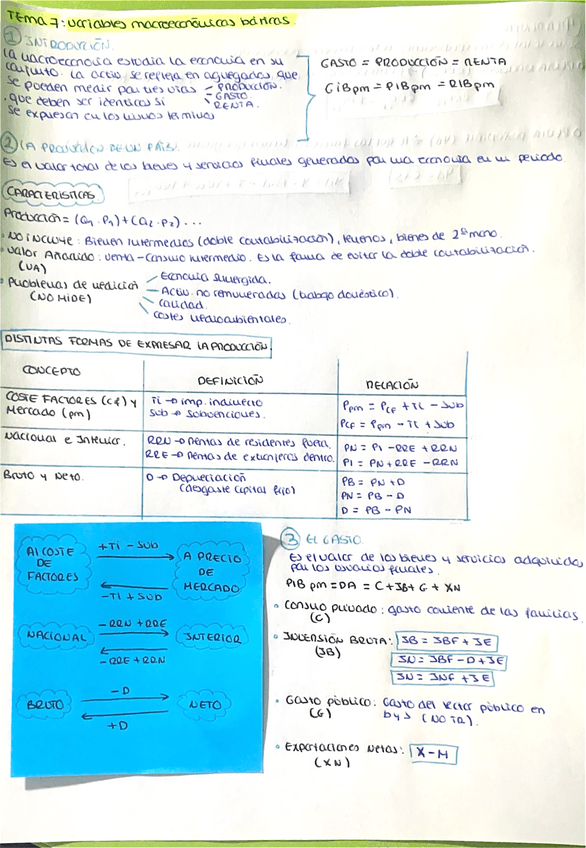 TEMA 7: variables macroeconómicas básicas
1 INTRODUCCIÓN.
La macroeconomía estudia la economía en su
conjunto. La activ. se refleja en agregados que
se pueden medir por tres vías - PRODUCCIÓN.
- GASTO.
- RENTA.
que deben ser idénticas si
se expresan en los mismos términos
GASTO = PRODUCCIÓN = RENTA
GIBpm = PIBpm = RIBpm
2 LA PRODUCCIÓN DE UN PAÍS.
Es el valor total de los bienes y servicios finales generados por una economía en un periodo
CARACTERÍSTICAS
Producción = (Q1 · P1) + (Q2 · P2) ...
· NO INCLUYE: Bienes intermedios (doble contabilización), terrenos, bienes de 2ª mano.
· Valor Añadido: venta - consumo intermedio. Es la forma de evitar la doble contabilización.
(VA)
· Problemas de medición
(NO MIDE)
Economía sumergida.
Activ. no remuneradas (trabajo doméstico).
calidad.
costes medioambientales.
DISTINTAS FORMAS DE EXPRESAR LA PRODUCCIÓN.
CONCEPTO DEFINICIÓN RELACIÓN
COSTE FACTORES (cf) y
Mercado (pm)
Ti → imp. indirecto
Sub → Subvenciones.
Ppm = Pcf + Ti - Sub
Pcf = Ppm - Ti + Sub
Nacional e Interior.
RRN → Rentas de residentes fuera.
RRE → Rentas de extranjeros dentro.
PN = PI - RRE + RRN
PI = PN + RRE - RRN
Bruto y Neto.
D → Depreciación
(desgaste capital fijo)
PB = PN + D
PN = PB - D
D = PB - PN
Al COSTE
DE
FACTORES
+Ti - Sub
-Ti + Sub
A PRECIO
DE
MERCADO
NACIONAL
-RRN + RRE
-RRE + RRN
INTERIOR
BRUTO
-D
+D
NETO
3 EL GASTO.
Es el valor de los bienes y servicios adquiridos
por los usuarios finales.
PIB pm = DA = C + IB + G + XN
· Consumo privado: gasto corriente de las familias.
(C)
· INVERSIÓN BRUTA: IB = IBF + IE
(IB)
IN = IBF - D + IE
IN = INF + IE
· Gasto público: Gasto del sector público en
(G) bys (NO TR).
· Exportaciones Netas: X - M
(XN)